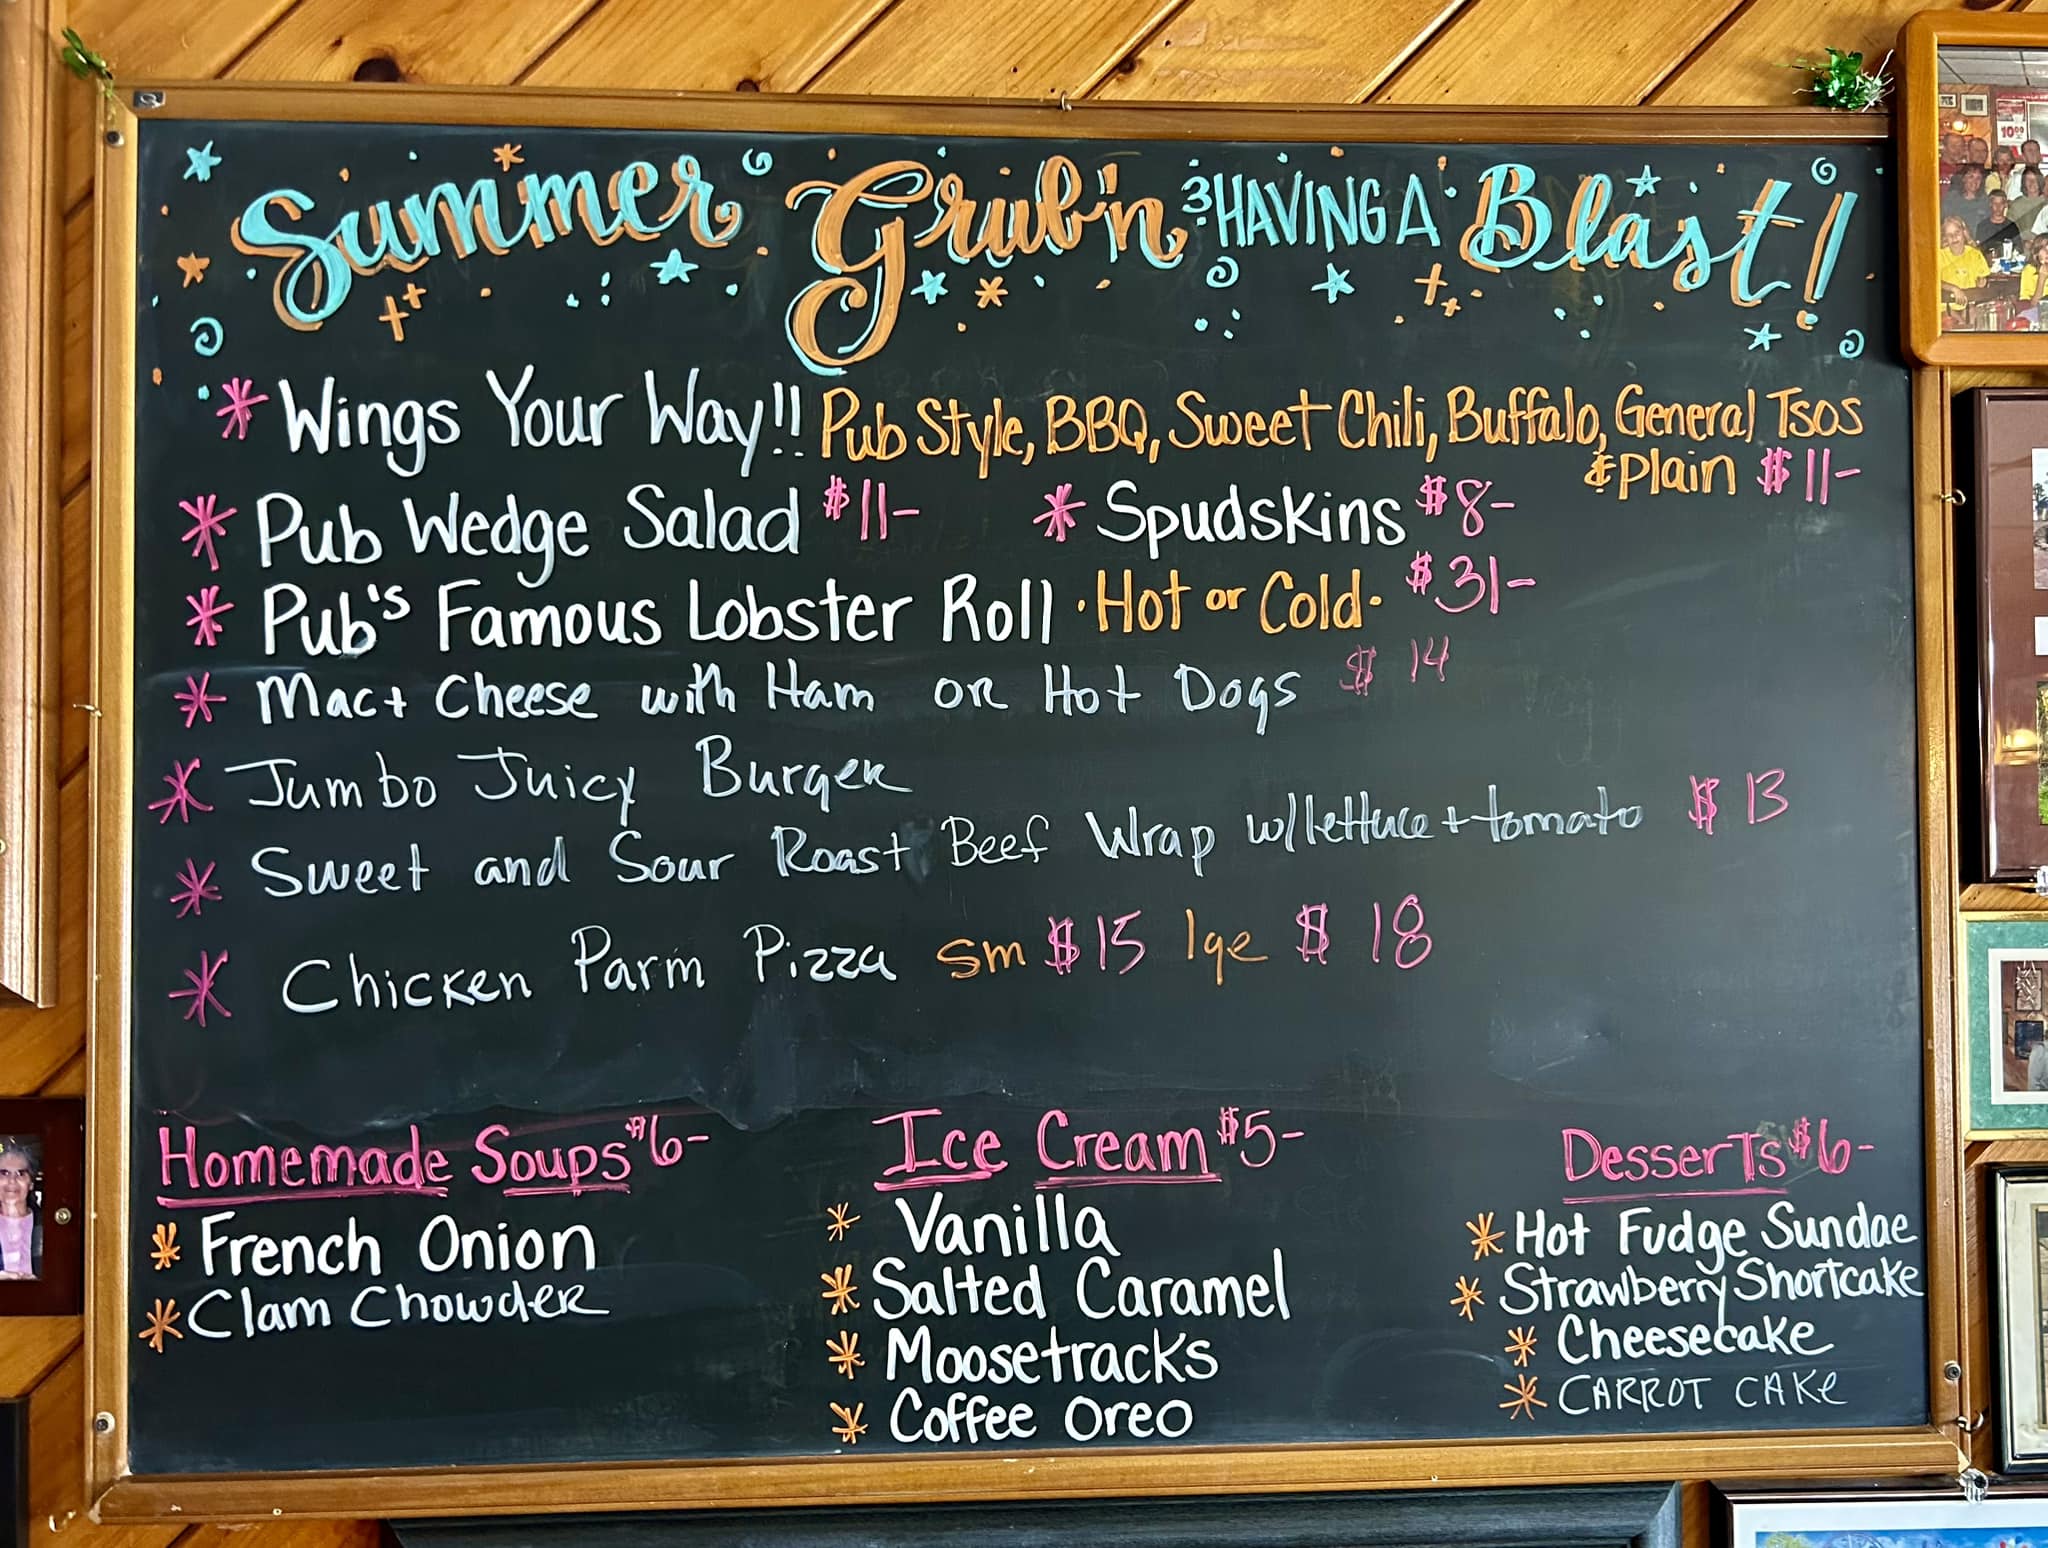 Summer Grub'n & HAVING A Blast!
* Wings Your Way!! Pub Style, BBQ, Sweet Chili, Buffalo, General Tsos
& Plain $11-
* Pub Wedge Salad $11- * Spudskins $8-
* Pub's Famous Lobster Roll · Hot or Cold · $31-
* Mac + Cheese with Ham or Hot Dogs $14
* Jumbo Juicy Burger
* Sweet and Sour Roast Beef Wrap w/lettuce + tomato $13
* Chicken Parm Pizza sm $15 lge $18
Homemade Soups $6-
* French Onion
* Clam Chowder
Ice Cream $5-
* Vanilla
* Salted Caramel
* Moosetracks
* Coffee Oreo
Desserts $6-
* Hot Fudge Sundae
* Strawberry Shortcake
* Cheesecake
* CARROT CAKE